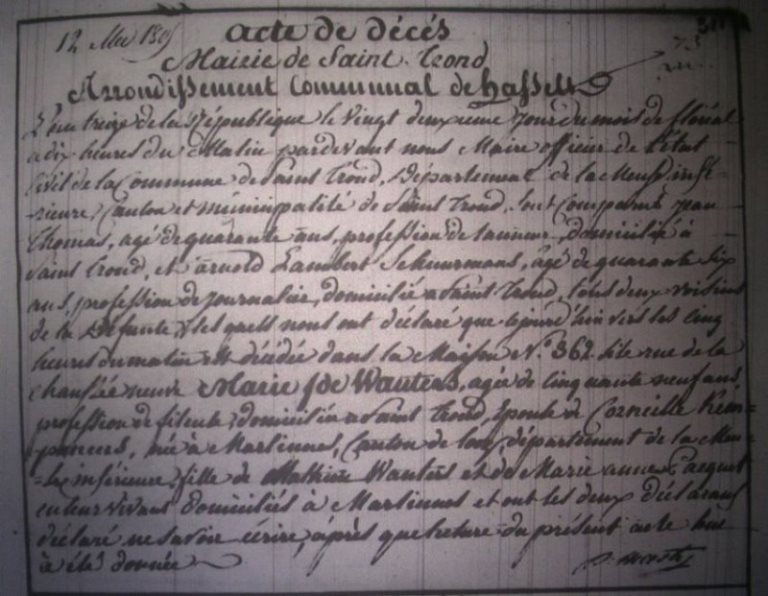 12 Mai 1805
acte de décés
Mairie de Saint Trond
Arrondissement Communal de hasselt
L'an treize de la République le vingt deuxieme jour du mois de floréal
a dix heures du Matin pardevant nous Maire officier de l'état
Civil de la Commune de Saint Trond, Département de la Meuse infé-
rieure, Canton et municipalité de Saint Trond, sont comparus jean
Thomas, agé de quarante ans, profession de tanneur, domicilié à
Saint Trond, et arnold Lambert Schuurmans, âgé de quarante six
ans, profession de journalier, domicilié a Saint Trond, tous deux voisins
de la Défunte, lesquels nous ont déclaré que cejourd'hui vers les cinq
heures du matin est décédée dans la Maison N.º 362 sise rue de la
chaussée neuve Marie jde Wauters, agée de cinquante neuf ans,
profession de fileuse, domiciliée a Saint Trond, Epouse de Corneille
née à Martinnes, Canton de looz, département de la Meu-
=se inférieure, fille de Mathieu Wauters et de Marie anne Jacquet
en leur vivant domiciliés à Martinnes et ont les deux déclarans
déclaré ne savoir écrire, après que lecture du présent acte leur
a été donnée